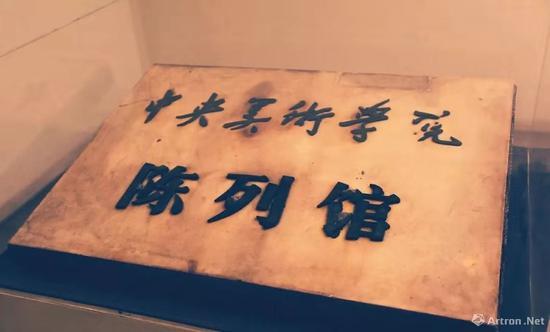 中央美術学院
陈列馆
Artron.Net